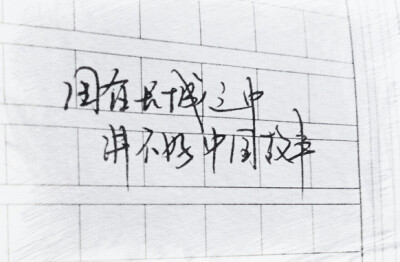 困在长城之中
讲不好中国故事